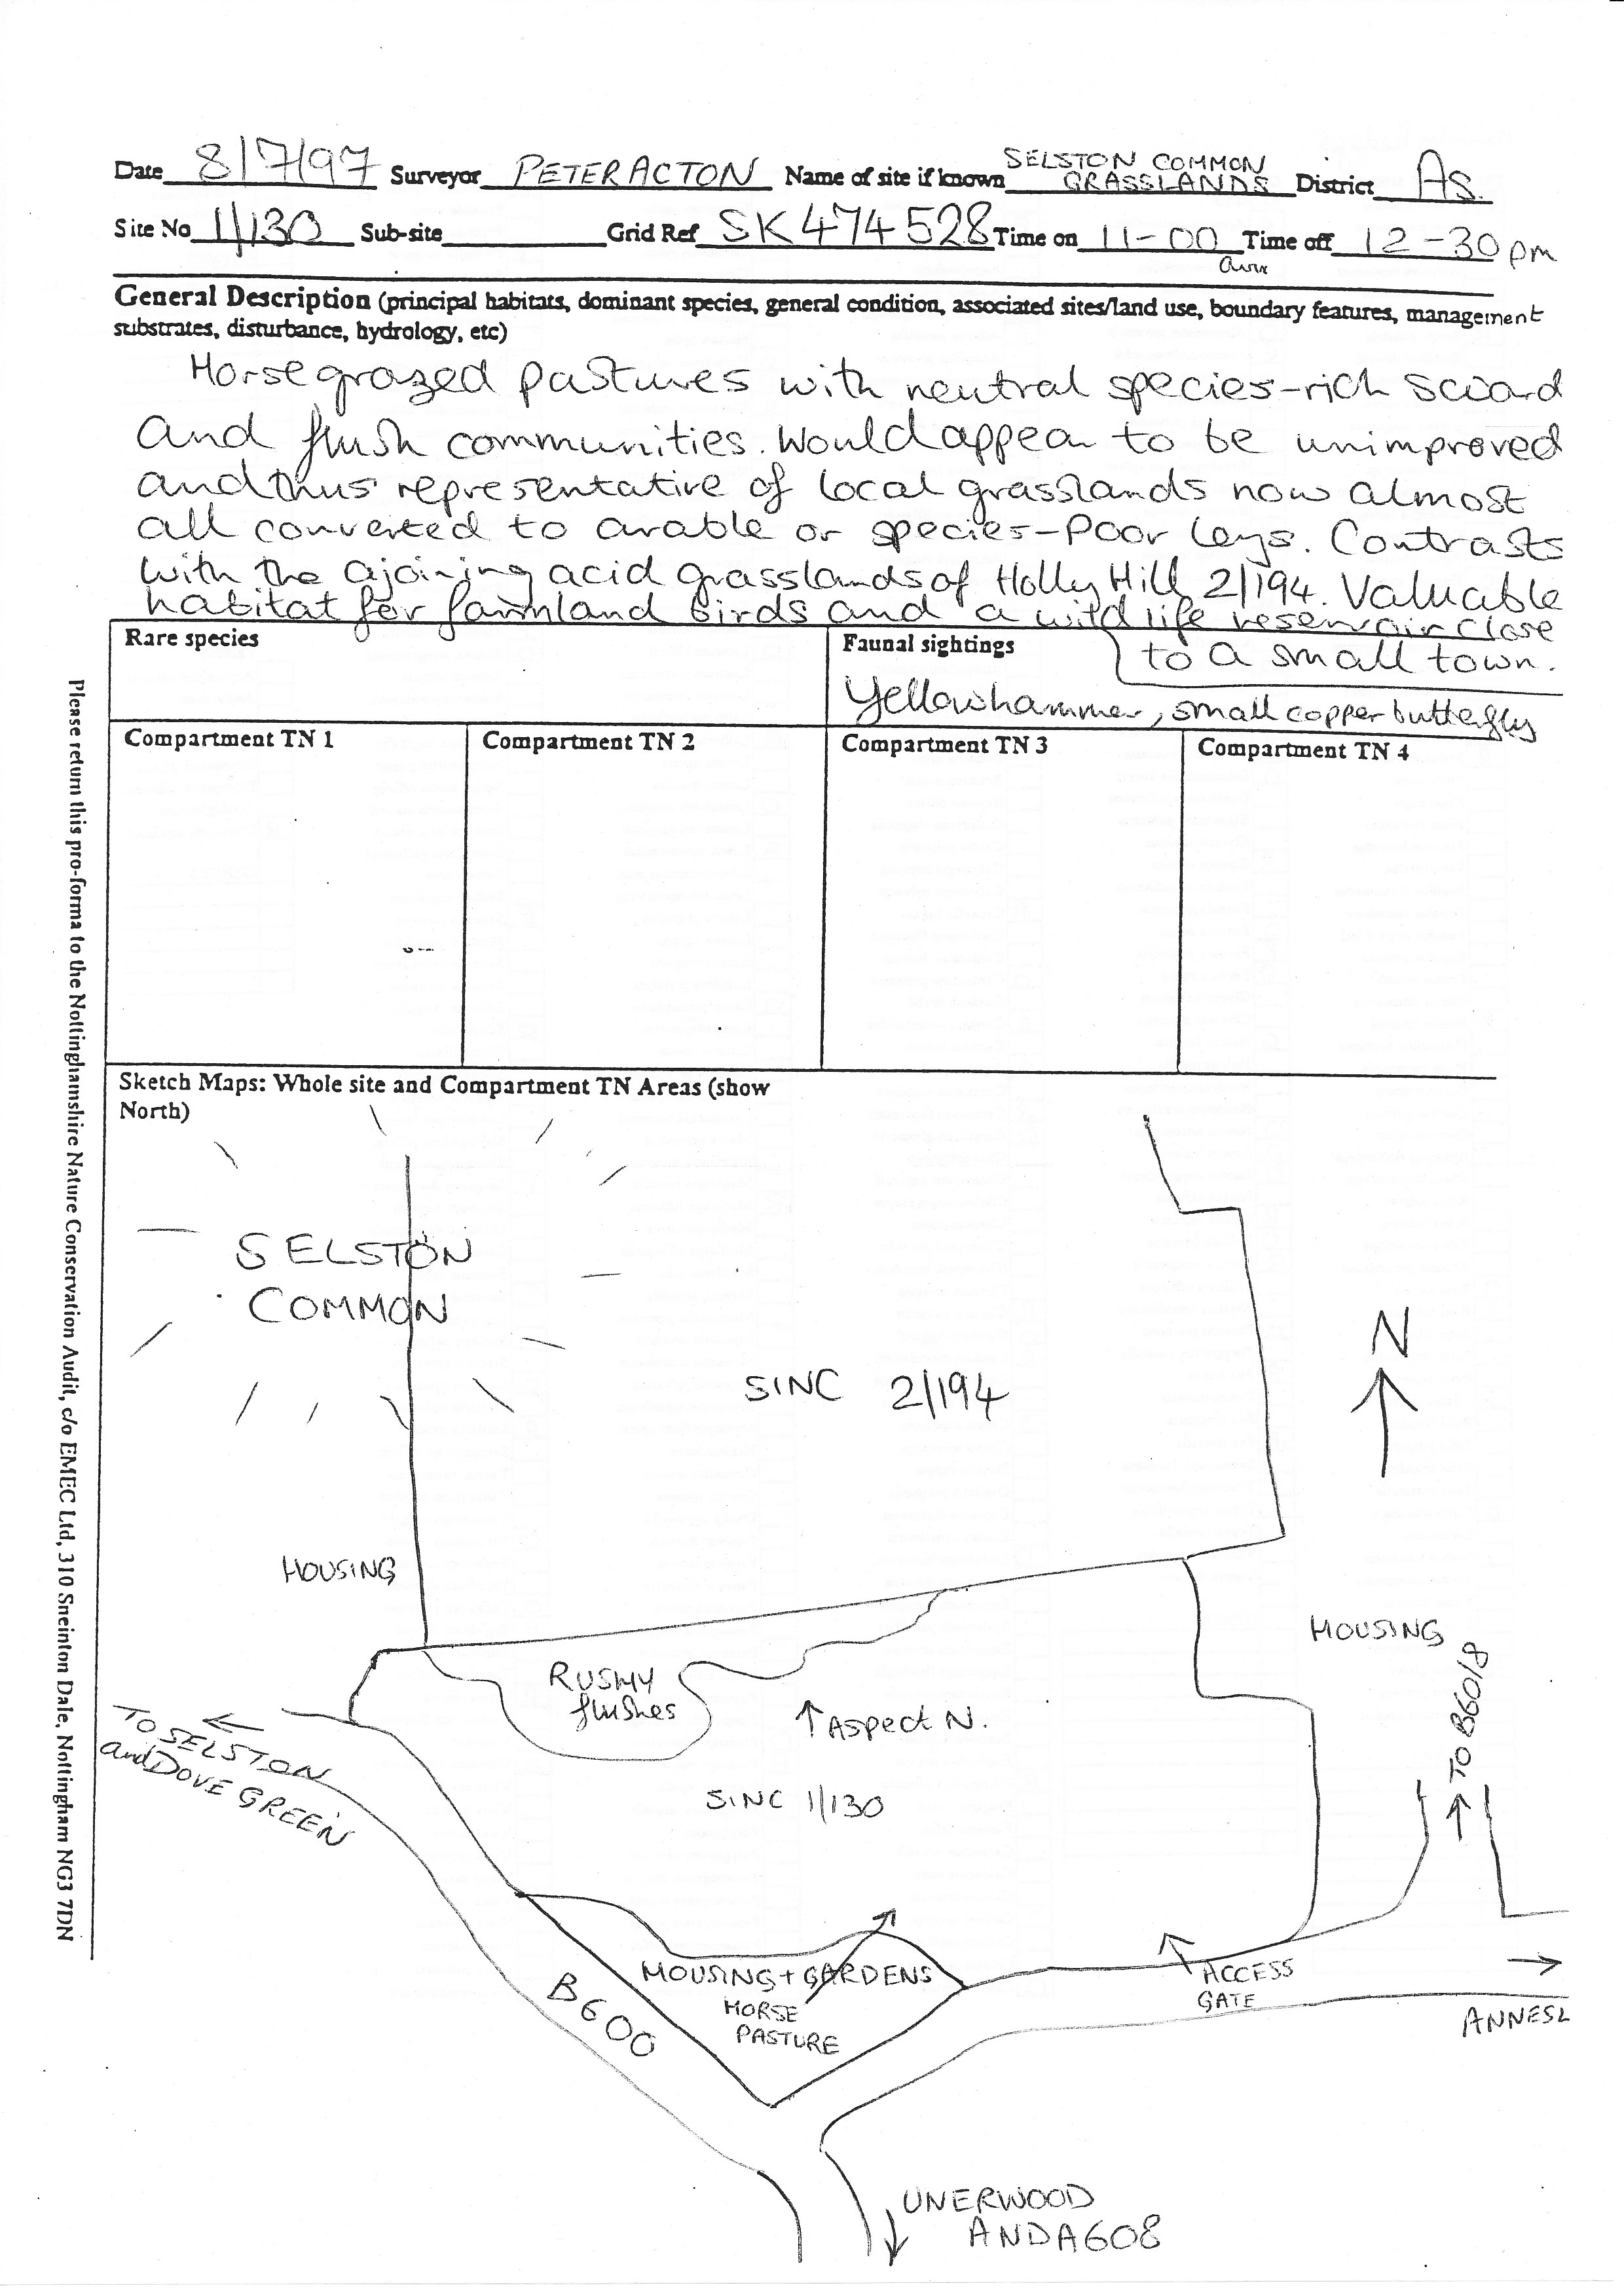 Date 8/7/97 Surveyor PETER ACTON Name of site if known SELSTON COMMON GRASSLANDS District As.
Site No 1/130 Sub-site Grid Ref SK 474 528 Time on 11-00 am Time off 12-30 pm
General Description (principal habitats, dominant species, general condition, associated sites/land use, boundary features, management
substrates, disturbance, hydrology, etc)
Horse grazed pastures with neutral species-rich sward
and flush communities. Would appear to be unimproved
and thus representative of local grasslands now almost
all converted to arable or species-poor leys. Contrasts
with the ajoining acid grasslands of Holly Hill 2/194. Valuable
habitat for farmland birds and a wildlife reservoir close
to a small town.
Rare species
Faunal sightings
Yellowhammer, small copper butterfly
Compartment TN 1
Compartment TN 2
Compartment TN 3
Compartment TN 4
Sketch Maps: Whole site and Compartment TN Areas (show
North)
SELSTON
COMMON
N
SINC 2/194
HOUSING
HOUSING
RUSHY
flushes
Aspect N.
TO B6018
TO SELSTON
and DOVE GREEN
SINC 1/130
HOUSING + GARDENS
HORSE
PASTURE
B600
ACCESS
GATE
ANNESL
UNERWOOD
AND A608
Please return this pro-forma to the Nottinghamshire Nature Conservation Audit, c/o EMEC Ltd, 310 Sneinton Dale, Nottingham NG3 7DN